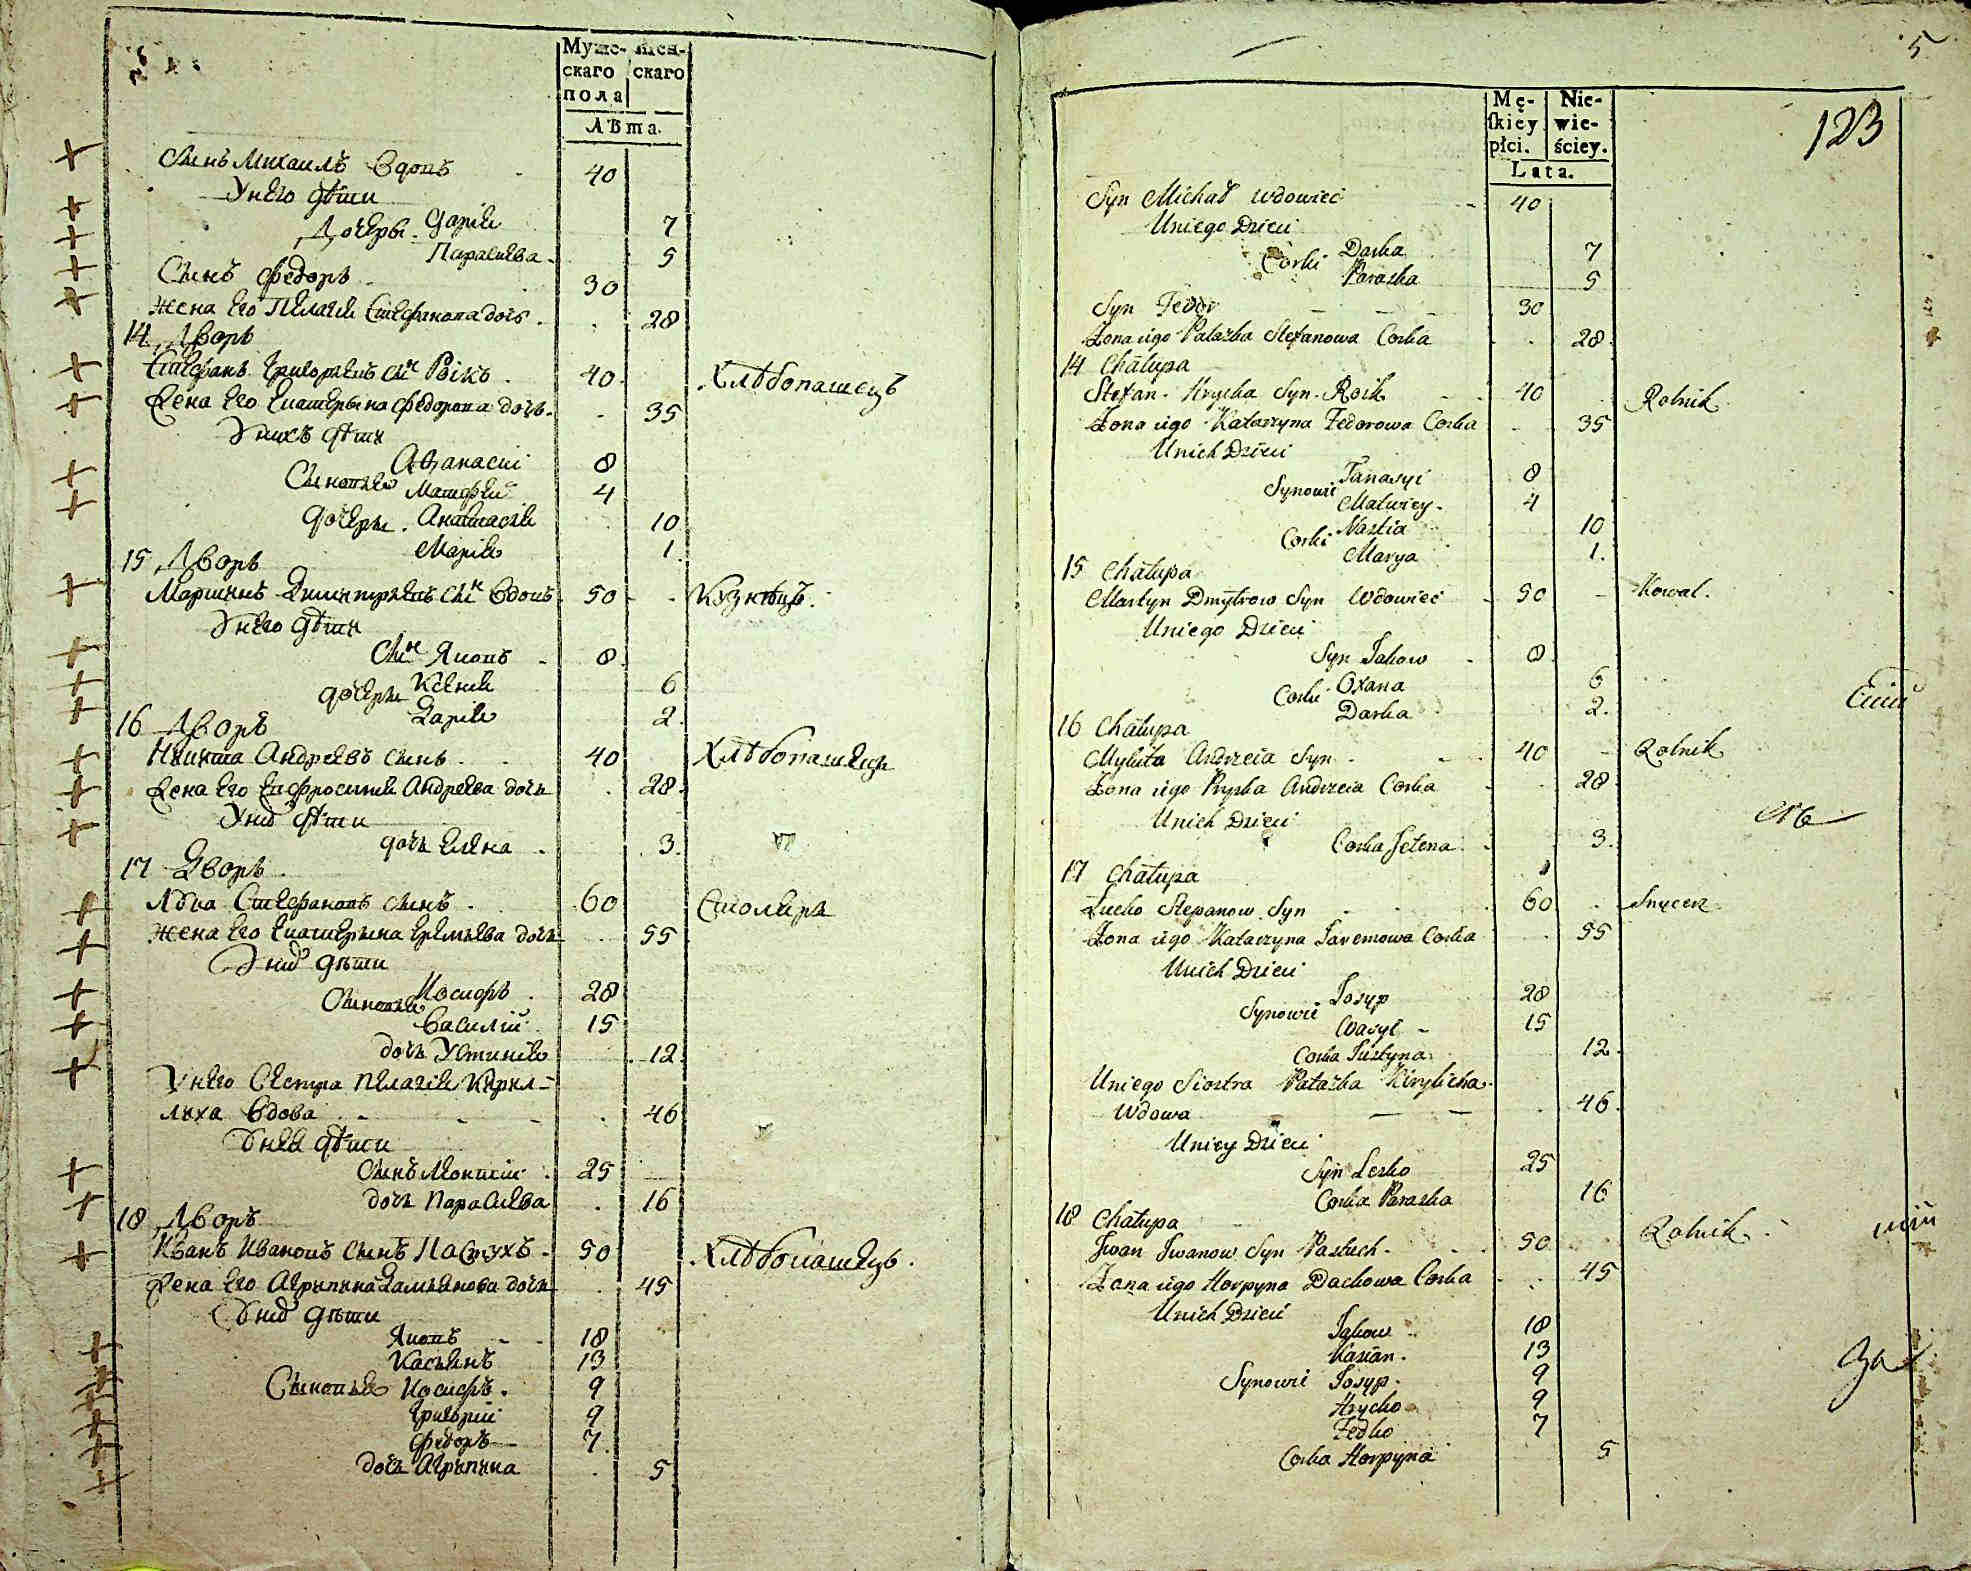 Муже- жен-
скаго скаго
пола
Лѣта.
Сынъ Михаилъ Вдовъ 40
У него дѣти
Дочери Дарія 7
Параскева 5
Сынъ Федоръ 30
жена его Пелагія Стефанова дочь 28
14 Дворъ
Стефанъ Григорьевъ сынъ Роікъ 40 Хлѣбопашецъ
Жена его Екатерына Федорова дочь 35
У нихъ дѣти
Афанасій 8
Сыновья Матфей 4
дочери Анастасія 10
Марія 1
15 Дворъ
Мартинъ Димитріевъ сынъ Вдовъ 50 Кузнецъ.
У него дѣти
Сынъ Яковъ 8
дочери Ксенія 6
Дарія 2
16 Дворъ
Никита Андреевъ сынъ 40 Хлѣбопашецъ
Жена его Евфросинія Андреева дочь 28
У нихъ дѣти
дочь Елена 3
17 Дворъ
Лука Стефановъ сынъ 60 Столяръ
жена его Екатерына Еремѣева дочь 55
У нихъ дѣти
Сыновья Иосифъ 28
Василій 15
дочь Устинія 12
У него Сестра Пелагія Кирил-
лиха Вдова 46
У ней дѣти
Сынъ Леонтій 25
дочь Параскева 16
18 Дворъ
Иванъ Ивановъ сынъ Пастухъ 50 Хлѣбопашецъ.
Жена его Агрипина Дамьянова дочь 45
У нихъ дѣти
Яковъ 18
Касьянъ 13
Сыновья Иосифъ 9
Григорій 9
Федоръ 7
дочь Агрипина 5
5
123
Mę- Nie-
skiey wie-
płci. ściey.
Lata.
Syn Michał Wdowiec 40
Uniego Dzieci
Corki Daska 7
Paraska 5
Syn Fedor 30
Zona iego Palażka Stefanowa Corka 28
14 Chałupa
Stefan Hrycka Syn Roik 40 Rolnik
Zona iego Katarzyna Fedorowa Corka 35
Unich Dzieci
Synowie Tanasyi 8
Matwiey 4
Corki Nastia 10
Marya 1.
15 Chałupa
Martyn Dmytrow Syn Wdowiec 50 Kowal.
Uniego Dzieci
Syn Jakow 8
Corki Oxana 6
Darka 2.
16 Chałupa
Mykita Andrzeia Syn 40 Rolnik
Zona iego Pryska Andrzeia Corka 28
Unich Dzieci
Corka Jelena 3.
17 Chałupa
Łucko Stepanow Syn 60 Snycerz
Zona iego Katarzyna Jaremowa Corka 55
Unich Dzieci
Synowie Josyp 28
Wasyl 15
Corka Justyna 12
Uniego Siostra Pałażka Kirylicha
Wdowa 46
Uniey Dzieci
Syn Lesko 25
Corka Paraska 16
18 Chałupa
Jwan Jwanow Syn Pastuch 50 Rolnik
Zona iego Horpyna Dackowa Corka 45
Unich Dzieci
Jakow 18
Kasian 13
Synowie Josyp 9
Hrycko 9
Fedko 7
Corka Horpyna 5